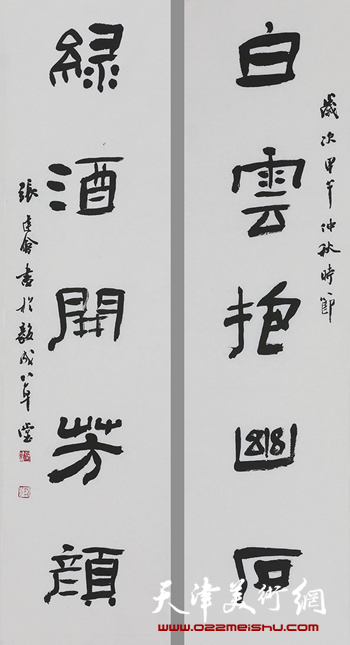 白雲抱幽石
歲次甲午仲秋時節
緑酒開芳顔
張建會書於毅成八年堂
天津美術網
www.022meishu.com